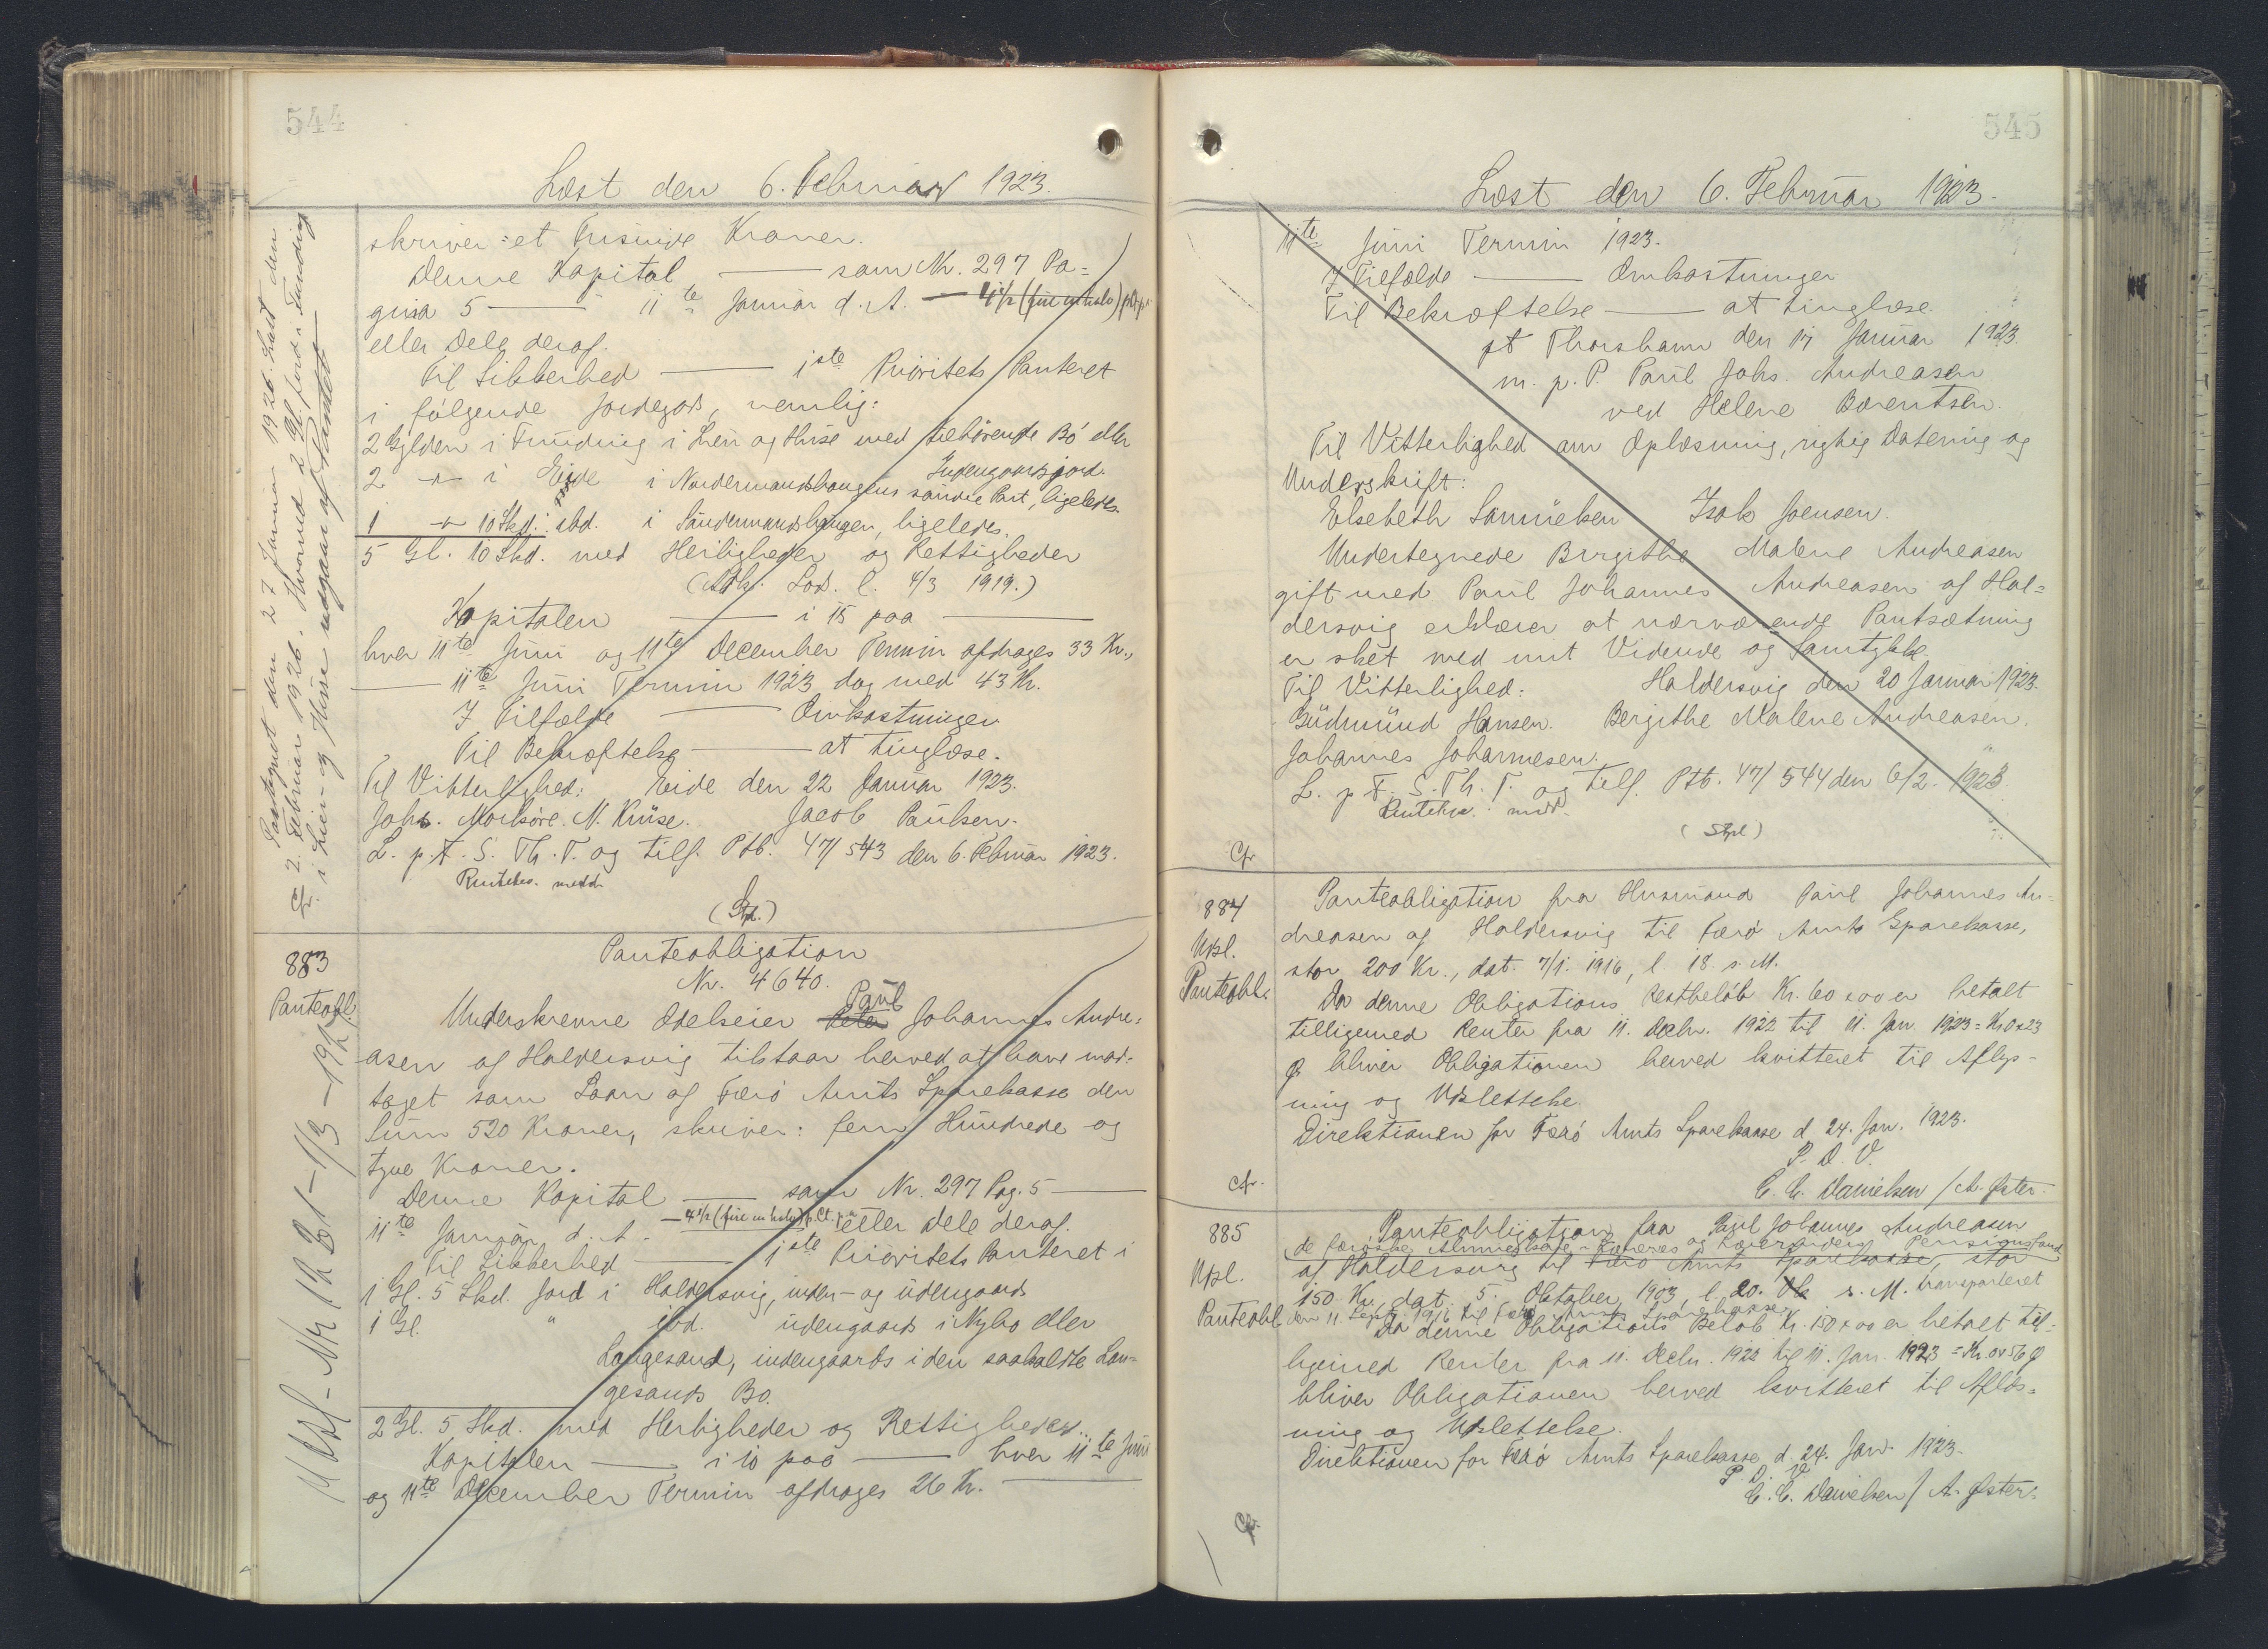 544
Læst den 6. Februar 1923.
skriver: et Tusinde Kroner.
Denne Kapital — som Nr. 297 Pa=
gina 5 — 11te Januar d. A. — 4 1/2 (fire en halv) pCt. p.
eller Dele deraf.
Til Sikkerhed — 1ste Prioritets Panteret
i følgende Jordegods, nemlig:
2 Gylden i Funding i Leir og Huse med tilhørende Bø eller
Indengaardsjord.
2 -"- i Eide i Nordermandshaugens søndre Part, ligeledes.
1 -"- 10 Skd. ibd. i Søndermandshaugen, ligeledes.
5 Gl. 10 Skd. med Herligheder og Rettigheder
(Adk. Sod. l. 4/3 1919.)
Kapitalen — i 15 paa —
hver 11te Juni og 11te December Termin afdrages 33 Kr.,
— 11te Juni Termin 1923 dog med 43 Kr.
I Tilfælde — Omkostninger
Til Bekræftelse — at tinglæse.
Til Vitterlighed: Eide den 22 Januar 1923.
Johs. Mørkøre. M. Krüse. Jacob Paulsen.
L. p. F. S. Th. T. og tilf. Ptb. 47/543 den 6. Februar 1923.
Rentebev. medd.
(Stpl.)
Cfr. 2. Februar 1926. Hvorved 2 Gl. Jord i Funding
i Leir- og Huse udgaar af Pantet
883
Panteobl.
Panteobligation
Nr. 4640.
Underskrevne Odelseier Peter Paul Johannes Andre=
asen af Haldersvig tilstaar herved at have mod=
taget som Laan af Færø Amts Sparekasse den
Sum 520 Kroner, skriver: fem Hundrede og
tyve Kroner.
Denne Kapital — som Nr. 297 Pag. 5 —
11te Januar d. A. — 4 1/2 (fire en halv) p.Ct. p. a. eller Dele deraf.
Til Sikkerhed — 1ste Prioritets Panteret i
1 Gl. 5 Skd. Jord i Haldersvig, inden- og udengaards
1 Gl. " ibd. udengaards i Nybo eller
Langesand, indengaards i den saakaldte Lan=
gesands Bo.
2 Gl. 5 Skd. med Herligheder og Rettigheder.
Kapitalen — i 10 paa — hver 11te Juni
og 11te December Termin afdrages 26 Kr. —
545
Læst den 6. Februar 1923.
11te Juni Termin 1923.
I Tilfælde — Omkostninger
Til Bekræftelse — at tinglæse.
pt Thorshavn den 17 Januar 1923.
m. p. P. Paul Johs. Andreasen
ved Helene Bærentsen.
Til Vitterlighed om Oplæsning, rigtig Datering og
Underskrift:
Elsebeth Samuelsen Isak Joensen.
Undertegnede Birgithe Malene Andreasen
gift med Paul Johannes Andreasen af Hal=
dersvig erklærer at nærværende Pantsætning
er sket med mit Vidende og Samtykke.
Til Vitterlighed: Haldersvig den 20 Januar 1923.
Gudmund Hansen. Bergithe Malene Andreasen.
Johannes Johannesen.
L. p. F. S. Th. T. og tilf. Ptb. 47/544 den 6/2. 1923
Rentebev. medd.
(Stpl)
Cfr
884
Upl.
Panteobl.
Panteobligation fra Husmand Paul Johannes An=
dreasen af Haldersvig til Færø Amts Sparekasse,
stor 200 Kr., dat. 7/1. 1916, l. 18. s. M.
Da denne Obligations Restbeløb Kr. 60 x 00 er betalt
tilligemed Renter fra 11. Decbr. 1922 til 11. Jan. 1923 = Kr 0 x 23
Ø bliver Obligationen herved kvitteret til Aflys-
ning og Udslettelse.
Direktionen for Færø Amts Sparekasse d. 24. Jan. 1923.
P. D. V.
C. C. Danielsen / A. Øster.
Cfr.
885
Upl.
Panteobl.
Panteobligation fra Paul Johannes Andreasen
de færøske Almueskole-Læreres og Lærerinders Pensionsfond
af Haldersvig til Færø Amts Sparekasse, stor
150 Kr., dat. 5. Oktober 1903, l. 20. s. M. transporteret
den 11. Septbr. 1916 til Færø Amts Sparekasse
Da denne Obligations Beløb Kr. 150 x 00 er betalt til=
ligemed Renter fra 11. Decbr. 1922 til 11. Jan. 1923 = Kr. 0 x 56 Ø
bliver Obligationen herved kvitteret til Aflys=
ning og Udslettelse.
Direktionen for Færø Amts Sparekasse d. 24. Jan. 1923.
P. D. V.
C. C. Danielsen / A. Øster.
Cfr.